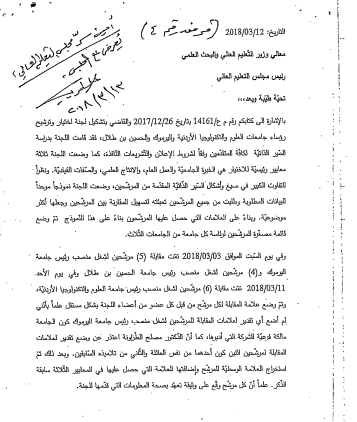 (مرفق رقم ٤)
التاريخ: 2018/03/12
معالي وزير التعليم العالي والبحث العلمي
رئيس مجلس التعليم العالي
تحية طيبة وبعد،،،
بالإشارة الى كتابكم رقم م ع/14161 تاريخ 2017/12/26 والقاضي بتشكيل لجنة لاختيار وترشيح
رؤساء جامعات العلوم والتكنولوجيا الأردنية واليرموك والحسين بن طلال، فقد قامت اللجنة بدراسة
السير الذاتية لكافة المتقدمين وفقاً لشروط الإعلان والتشريعات النافذة، كما وضعت اللجنة ثلاثة
معايير رئيسية للاختيار هي الخبرة الجامعية والعمل، والانتاج العلمي، والصفات القيادية. ونظراً
للتفاوت الكبير في صيغ وأشكال السير الذاتية المقدمة من المرشحين، وضعت اللجنة نموذجاً موحداً
للبيانات المطلوبة وطلبت من جميع المرشحين تعبئته لتسهيل المقارنة بين المرشحين وجعلها أكثر
موضوعية. وبناءً على العلامات التي حصل عليها المرشحون بناءً على هذا النموذج تم وضع
قائمة مصغرة للمرشحين لرئاسة كل جامعة من الجامعات الثلاث.
وفي يوم السبت الموافق 2018/03/03 تمت مقابلة (5) مرشحين لشغل منصب رئيس جامعة
اليرموك و(4) مرشحين لشغل منصب رئيس جامعة الحسين بن طلال وفي يوم الأحد
2018/03/11 تمت مقابلة (6) مرشحين لشغل منصب رئيس جامعة العلوم والتكنولوجيا الأردنية،
وتم وضع علامة المقابلة لكل مرشح من قبل كل عضو من أعضاء اللجنة بشكل مستقل علماً بأنني
لم أضع أي تقدير لعلامات المقابلة للمرشحين لشغل منصب رئيس جامعة اليرموك كون الجامعة
مالكة فرعية للشركة التي أديرها، كما أن الدكتور مصلح الطراونة اعتذر عن وضع تقدير لعلامات
المقابلة لمرشحين اثنين كون أحدهما من نفس العائلة والثاني من تلاميذه السابقين. وبعد ذلك تم
استخراج العلامة الوسطية للمرشحين وإضافتها للعلامة التي حصل عليها في المعايير الثلاثة سابقة
الذكر. علماً أن كل مرشح وقع على وثيقة تعهد بصحة المعلومات التي قدمها للجنة.